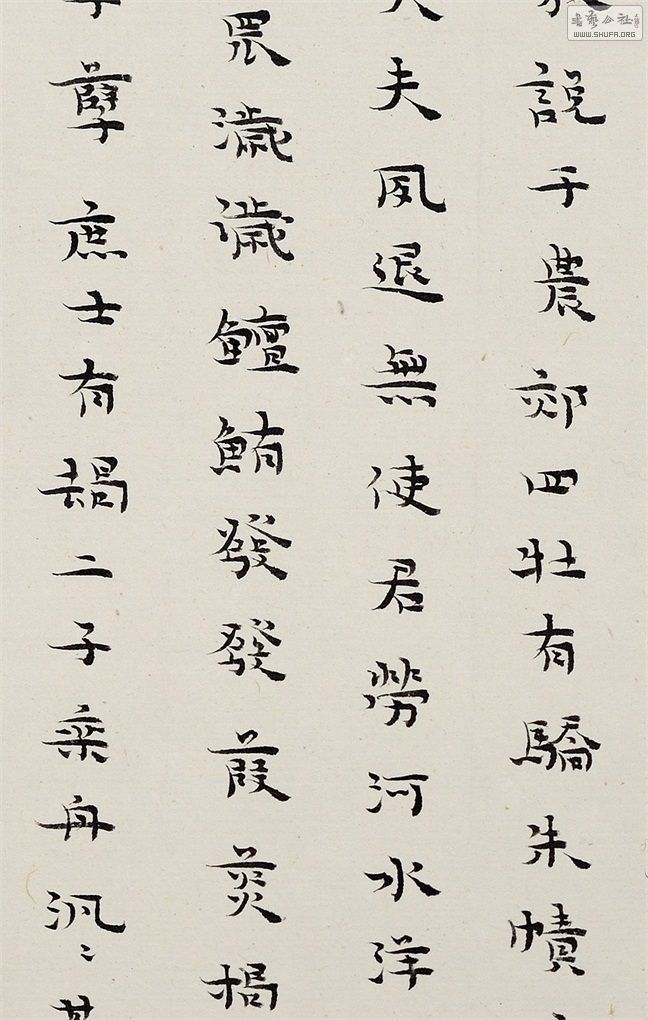 說于農郊四牡有驕朱幩
夫夙退無使君勞河水洋
罛濊濊鱣鮪發發葭菼揭
孽庶士有朅二子乘舟汎〻其
書藝公社
WWW.SHUFA.ORG